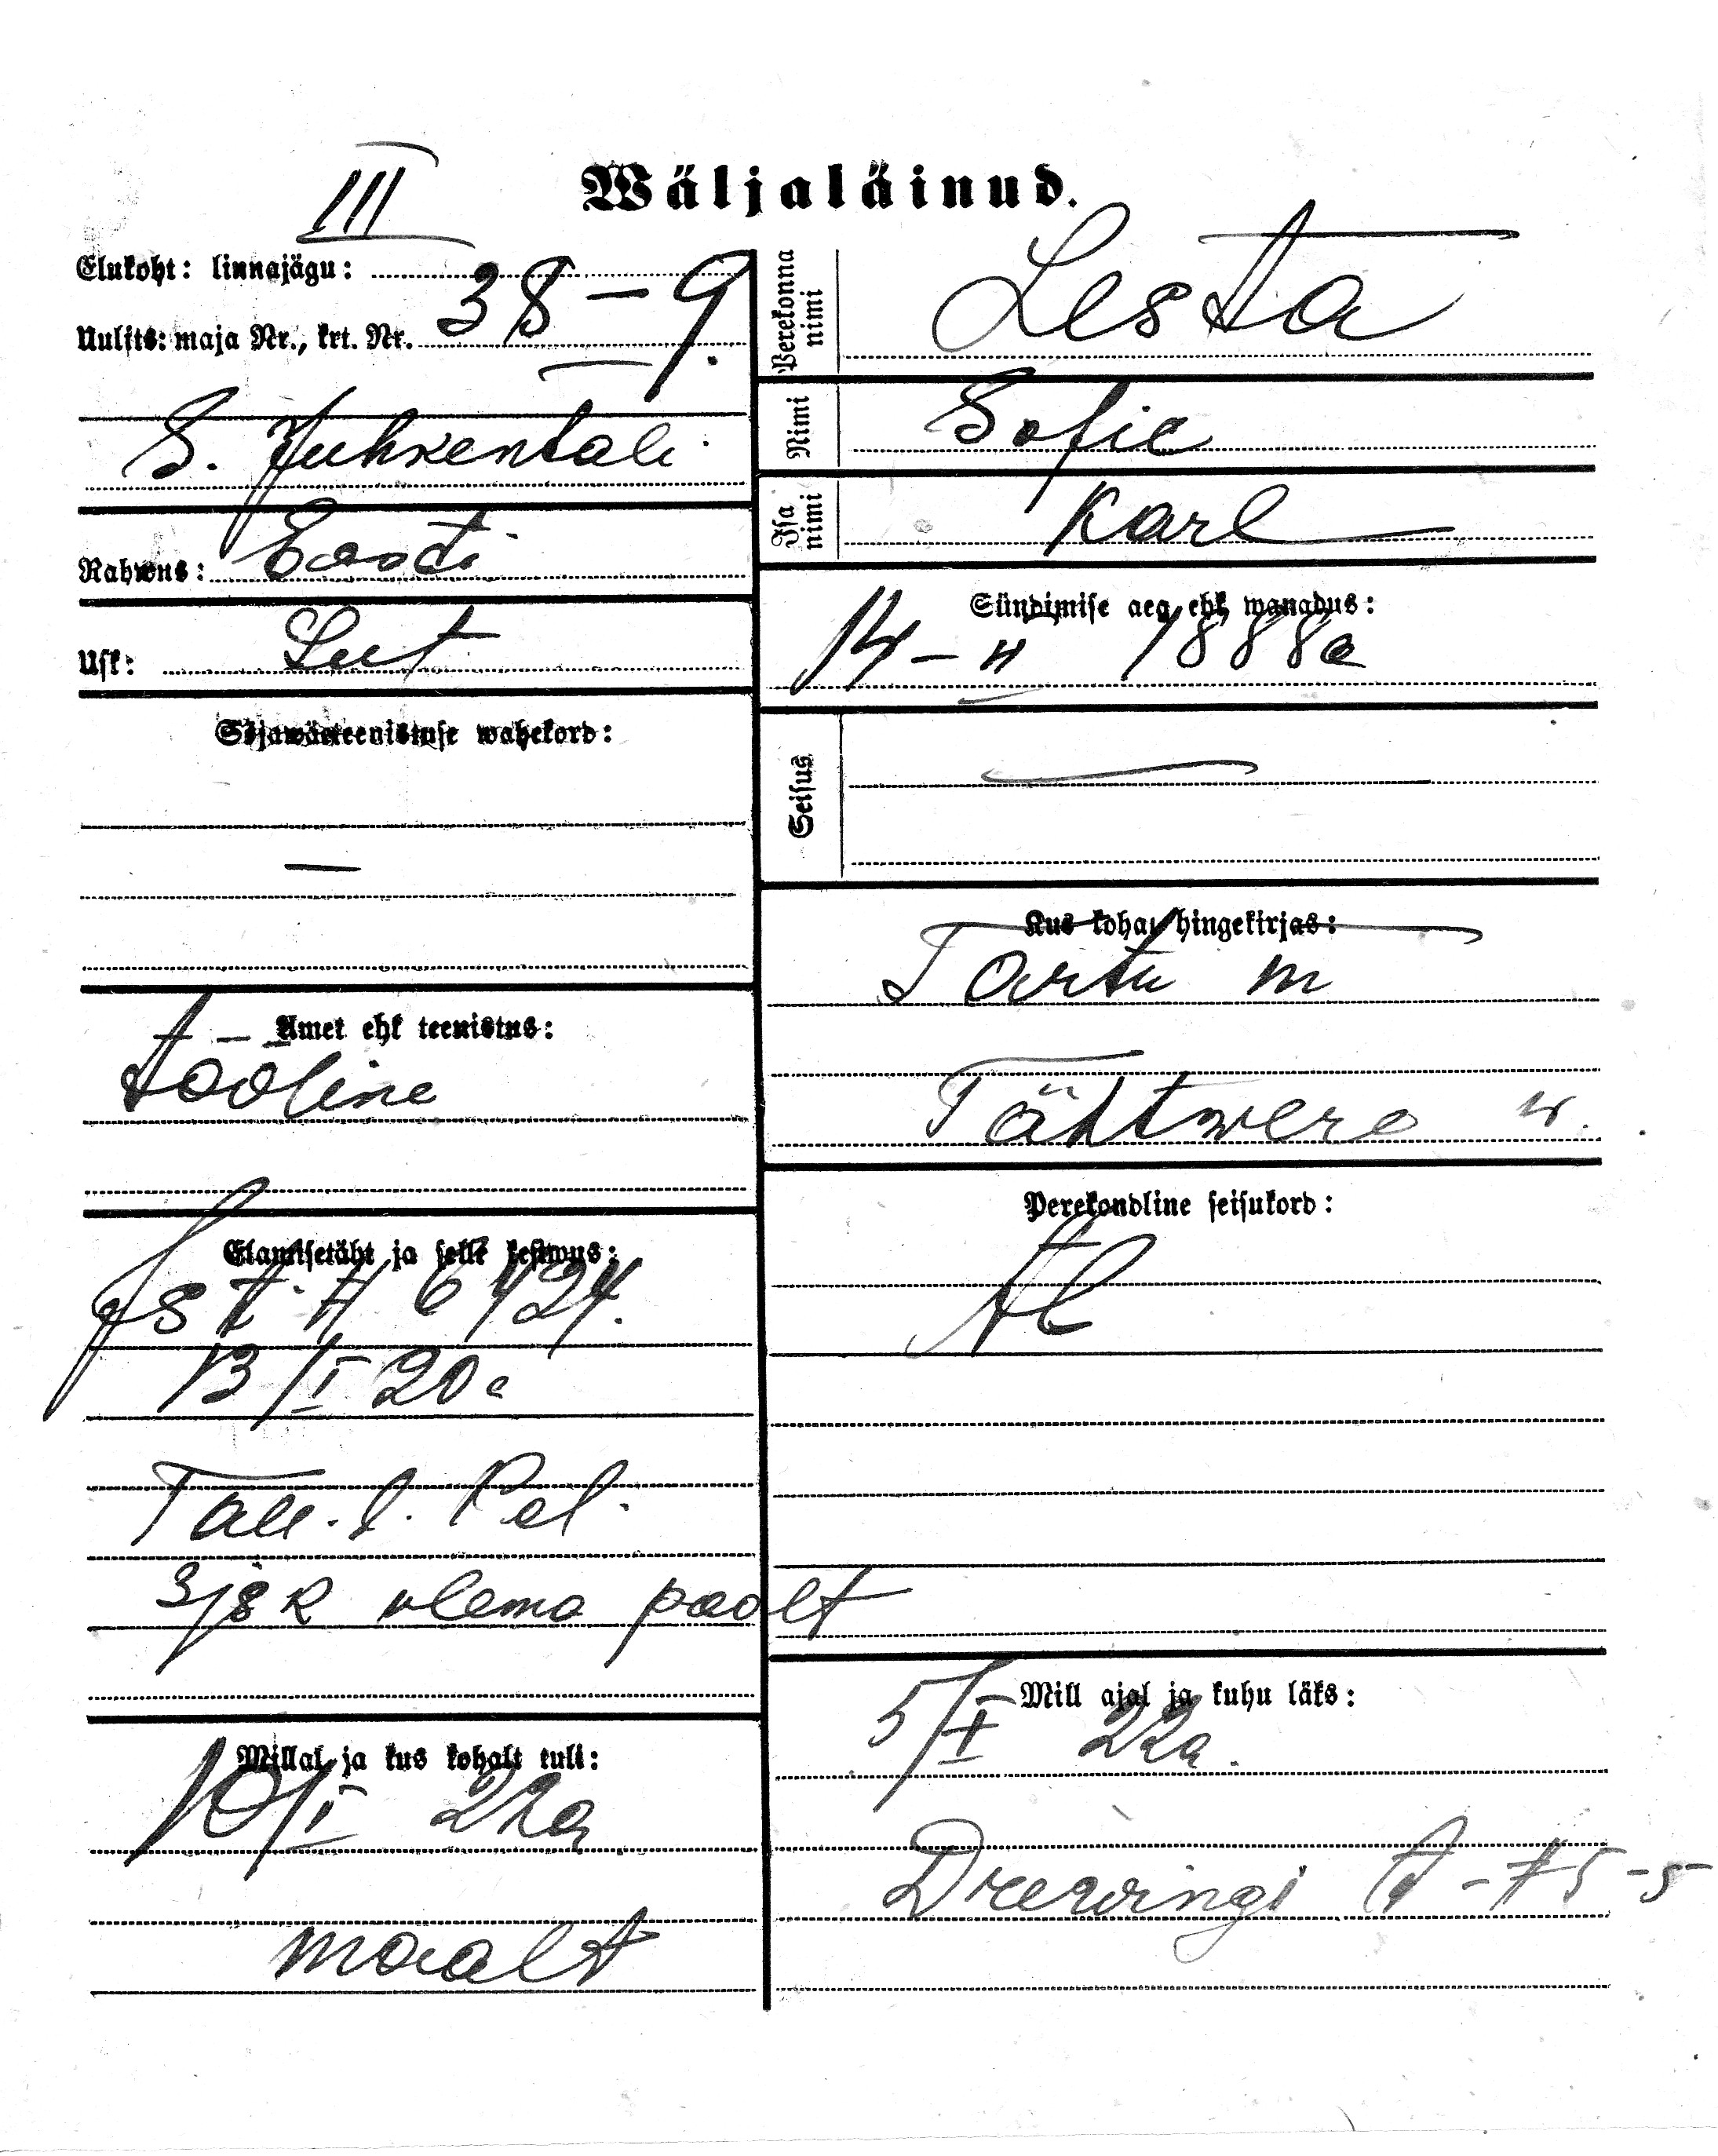 Wäljaläinud.
III
Elukoht: linnajägu:
Uulits: maja Nr., krt. Nr. 38 – 9.
S. Juhkentali
Rahwus: Eesti
Usk: Lut
Sõjawäeteenistuse wahekord:
—
Amet ehk teenistus:
tööline
Elamisetäht ja selle kestwus:
6424.
13/I 20a
Tall. l. Pol.
3 jsk ülema poolt
Millal ja kus kohalt tuli:
10/I 22a
maalt
Perekonna nimi Lesta
Nimi Sofie
Isa nimi Karl
Sündimise aeg ehk wanadus:
14 – II 1888a
Seisus
Kus kohal hingekirjas:
Tartu m
Tähtwere w.
Perekondline seisukord:
Mill ajal ja kuhu läks:
5/X 22a.
Drewingi